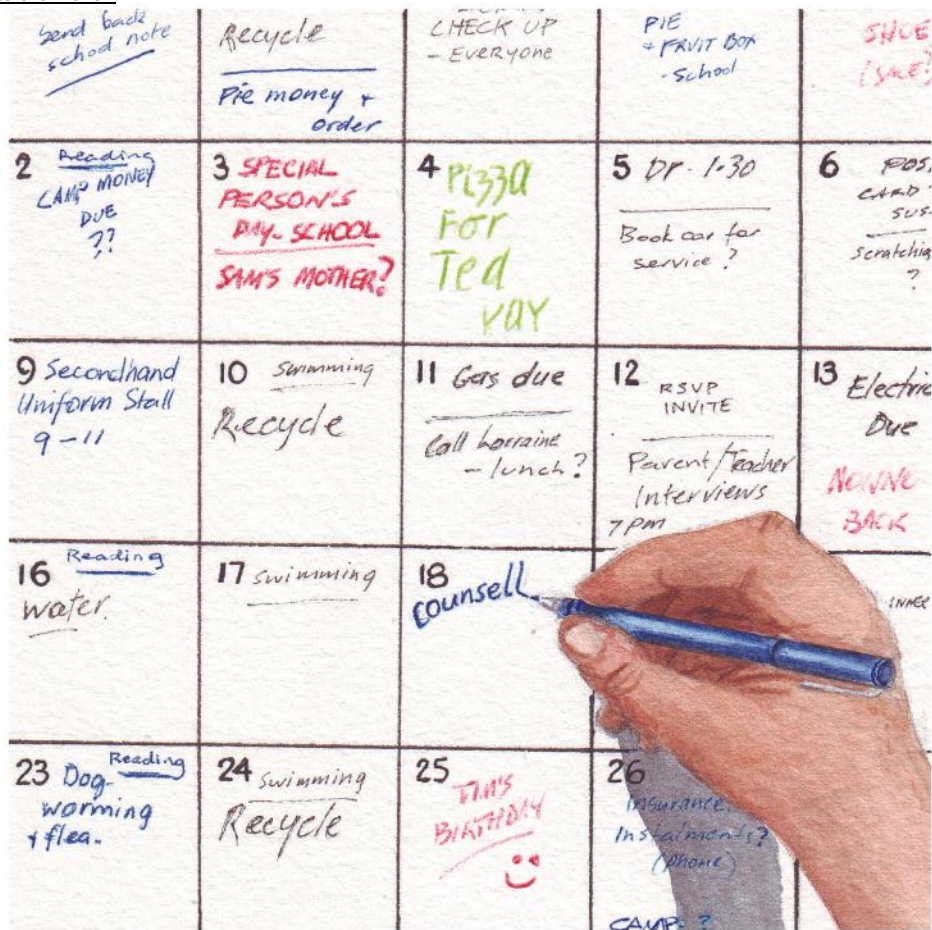 Send back
school note
Recycle
Pie money +
order
CHECK UP
- EVERYONE
PIE
+ FRUIT BOX
- School
SHOE
(SALE?
2 Reading
CAMP MONEY
DUE
??
3 SPECIAL
PERSON'S
DAY - SCHOOL
SAM'S MOTHER?
4 Pizza
For
Ted
yay
5 Dr. 1.30
Book car for
service?
6 POS
CARD
SUS
Scratchi
?
9 Secondhand
Uniform Stall
9-11
10 Swimming
Recycle
11 Gas due
Call Lorraine
- lunch?
12 RSVP
INVITE
Parent/Teacher
Interviews
7pm
13 Electric
Due
BACK
16 Reading
water.
17 swimming
18
counsell
23 Dog- Reading
worming
+ flea.
24 swimming
Recycle
25 TIM'S
BIRTHDAY
26
Insurance
Instalments?
(phone)
CAMP ?